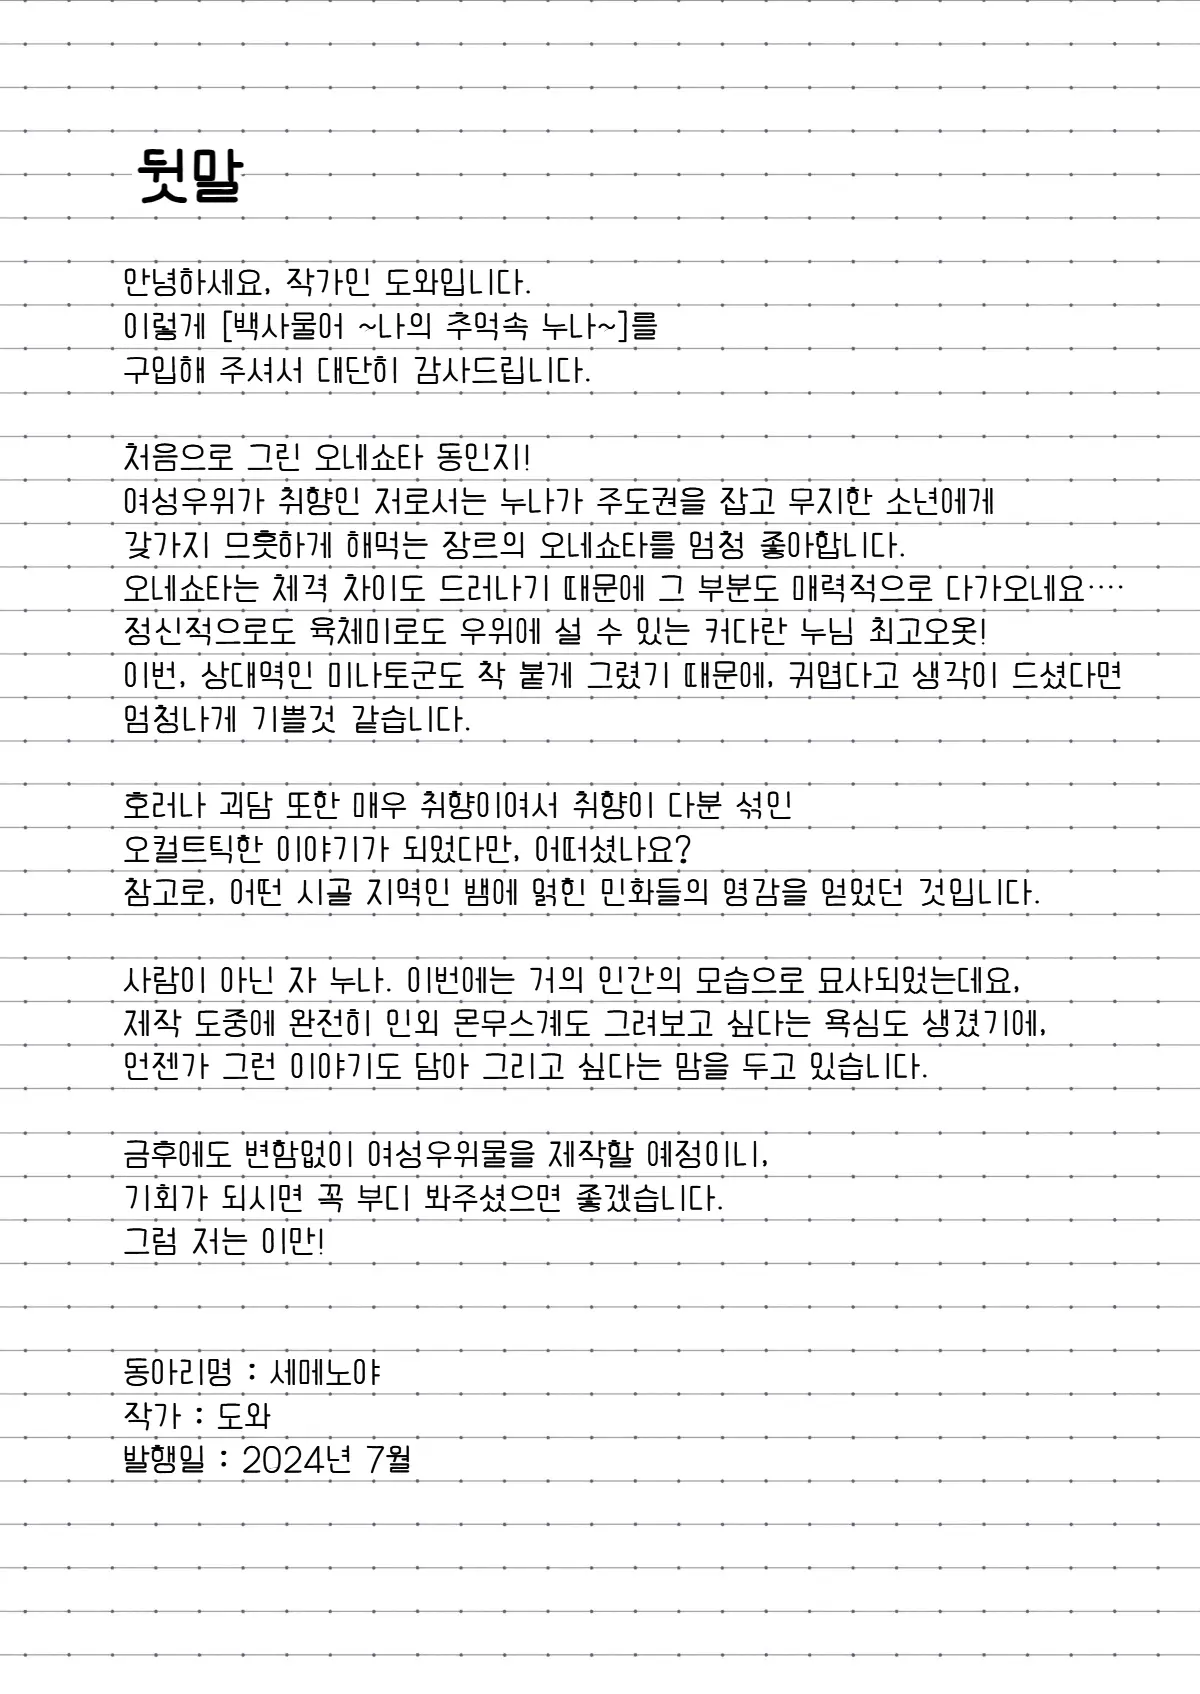 뒷말
안녕하세요, 작가인 도와입니다.
이렇게 [백사물어 ~나의 추억속 누나~]를
구입해 주셔서 대단히 감사드립니다.
처음으로 그린 오네쇼타 동인지!
여성우위가 취향인 저로서는 누나가 주도권을 잡고 무지한 소년에게
갖가지 므흣하게 해먹는 장르의 오네쇼타를 엄청 좋아합니다.
오네쇼타는 체격 차이도 드러나기 때문에 그 부분도 매력적으로 다가오네요····
정신적으로도 육체미로도 우위에 설 수 있는 커다란 누님 최고오옷!
이번, 상대역인 미나토군도 착 붙게 그렸기 때문에, 귀엽다고 생각이 드셨다면
엄청나게 기쁠것 같습니다.
호러나 괴담 또한 매우 취향이여서 취향이 다분 섞인
오컬트틱한 이야기가 되었다만, 어떠셨나요?
참고로, 어떤 시골 지역인 뱀에 얽힌 민화들의 영감을 얻었던 것입니다.
사람이 아닌 자 누나. 이번에는 거의 인간의 모습으로 묘사되었는데요,
제작 도중에 완전히 인외 몬무스계도 그려보고 싶다는 욕심도 생겼기에,
언젠가 그런 이야기도 담아 그리고 싶다는 맘을 두고 있습니다.
금후에도 변함없이 여성우위물을 제작할 예정이니,
기회가 되시면 꼭 부디 봐주셨으면 좋겠습니다.
그럼 저는 이만!
동아리명 : 세메노야
작가 : 도와
발행일 : 2024년 7월